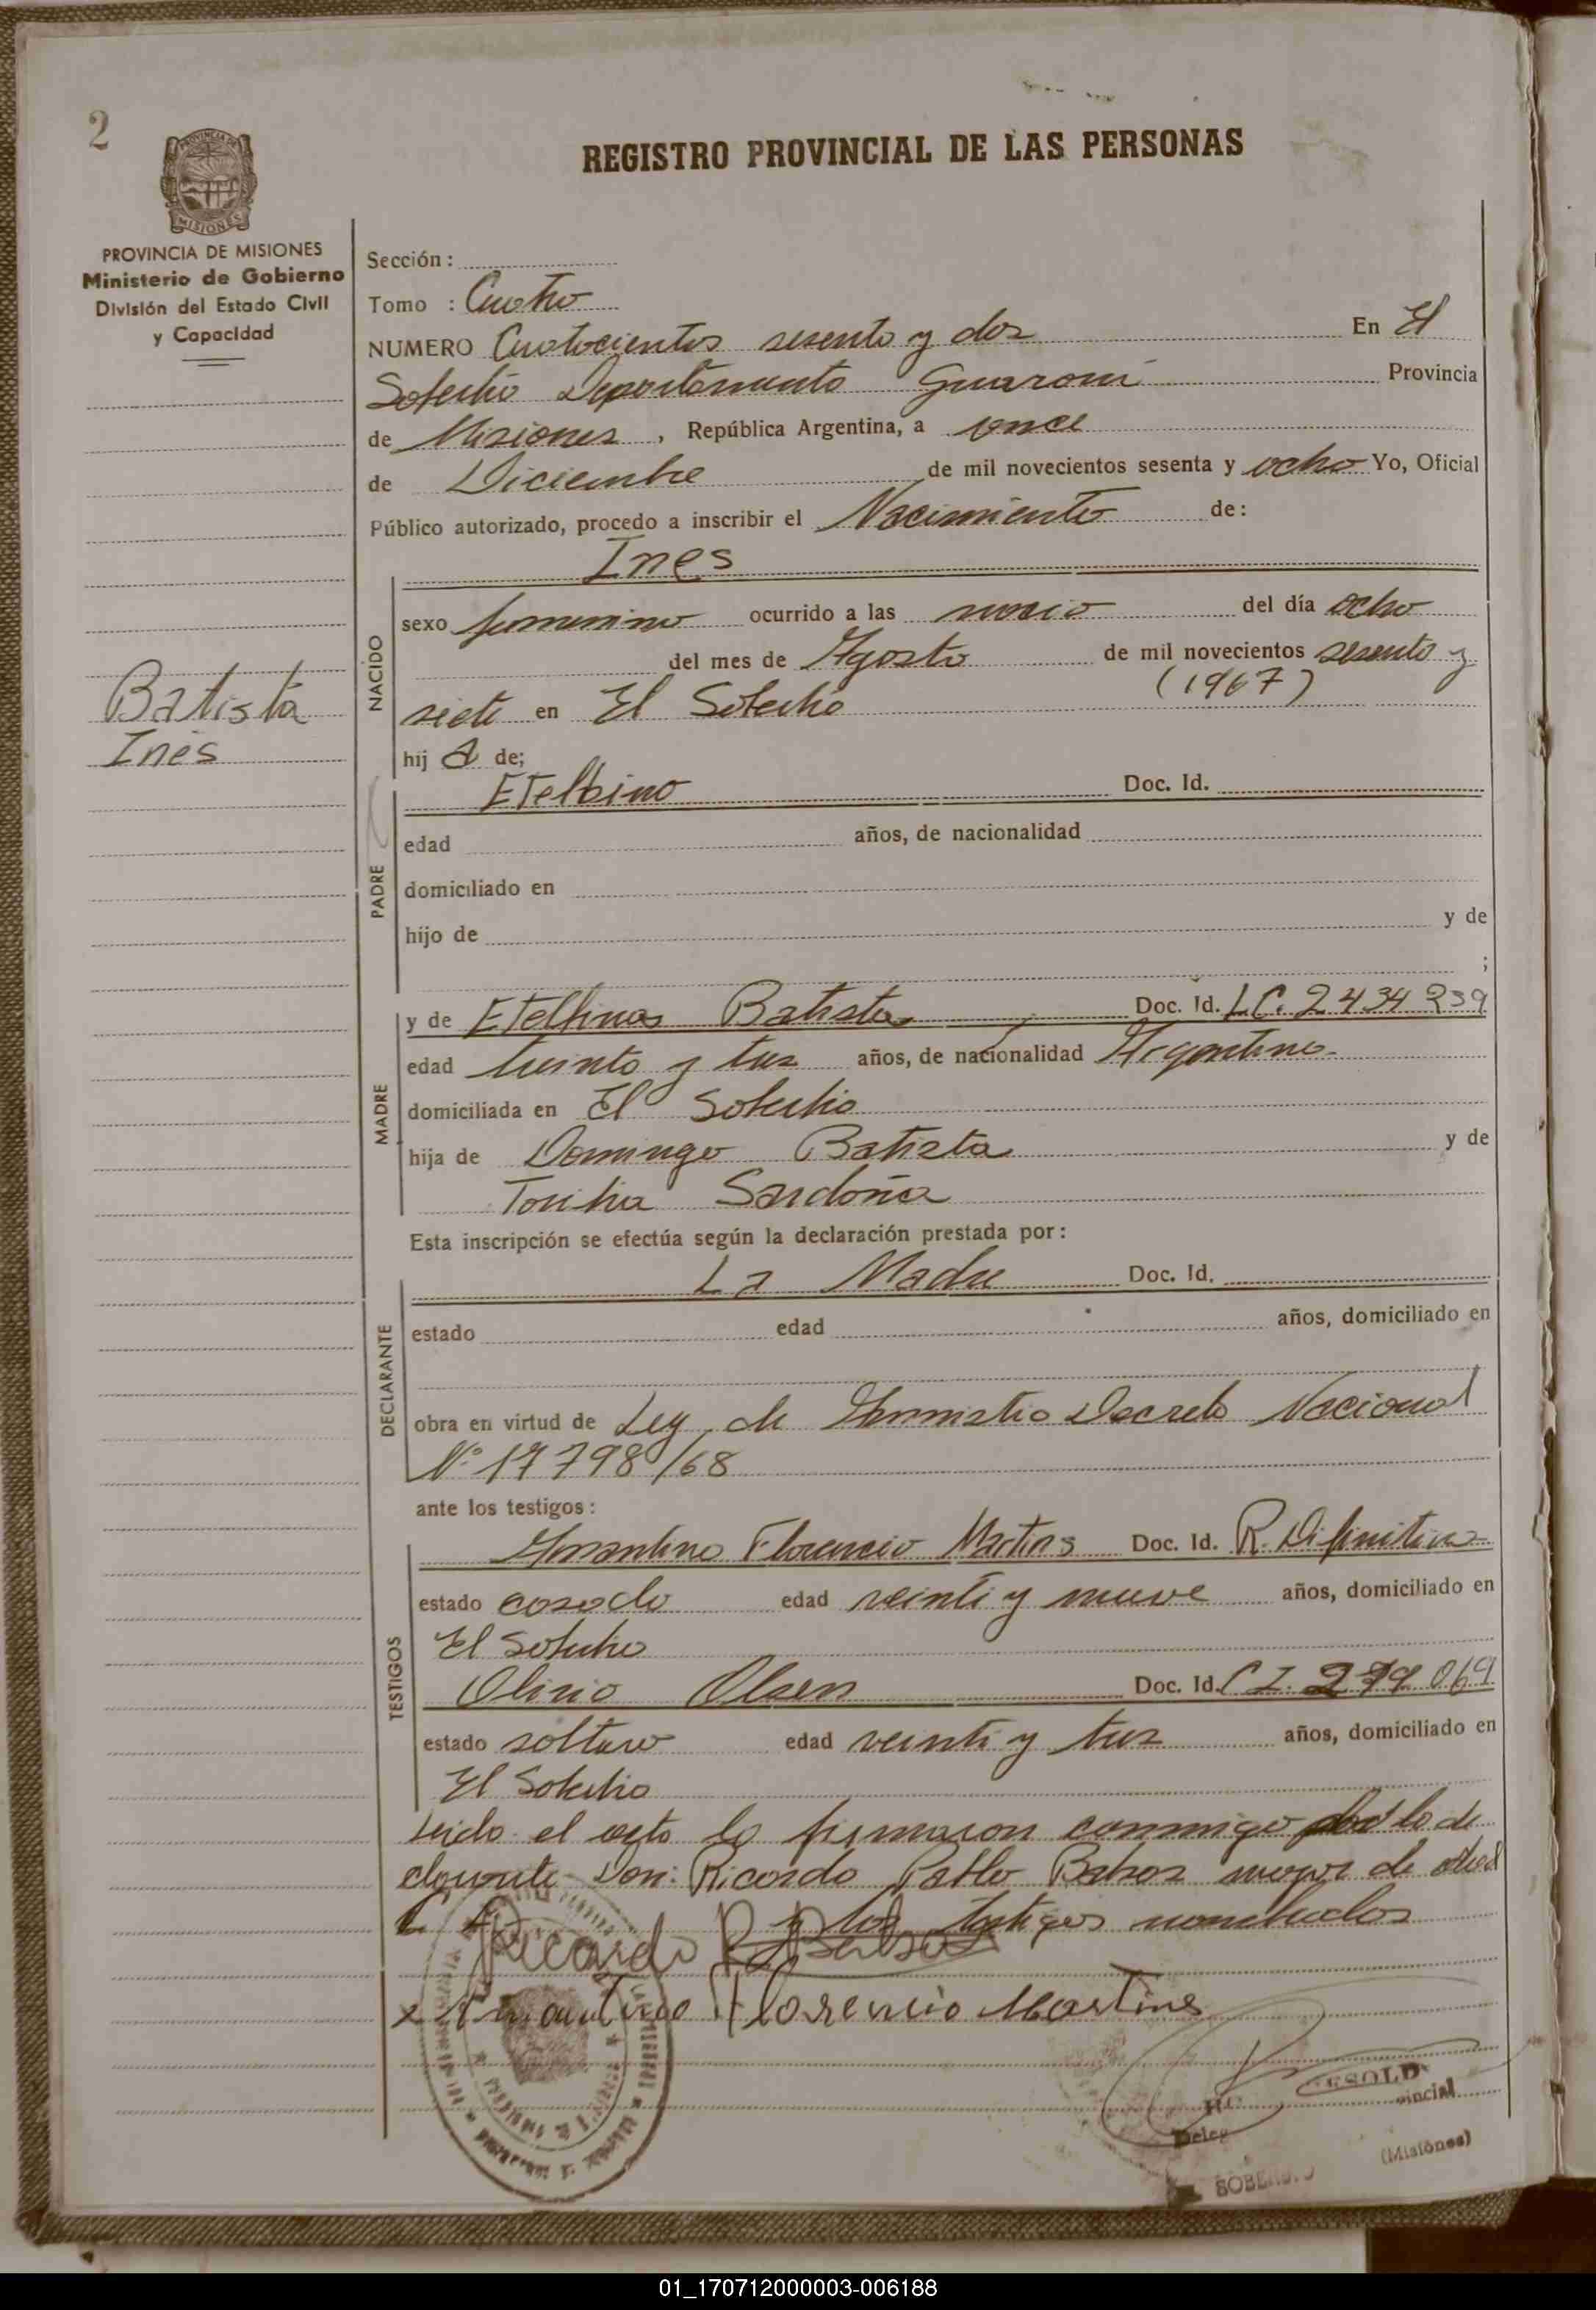 2
REGISTRO PROVINCIAL DE LAS PERSONAS
PROVINCIA DE MISIONES
MISIONES
PROVINCIA DE MISIONES
Ministerio de Gobierno
División del Estado Civil
y Capacidad
Batista
Inés
Sección:
Tomo : Cuatro
NUMERO Cuatocientos sesenta y dos En El
Soberbio Departamento Guaraní Provincia
de Misiones, República Argentina, a once
de Diciembre de mil novecientos sesenta y ocho Yo, Oficial
Público autorizado, procedo a inscribir el Nacimiento de:
Ines
NACIDO
sexo femenino ocurrido a las del día ocho
del mes de Agosto de mil novecientos sesenta y
(1967)
siete en El Soberbio
hija de;
PADRE
Etelbino Doc. Id.
edad años, de nacionalidad
domiciliado en
hijo de y de
;
MADRE
y de Etelbina Batista Doc. Id. L.C. 2434239
edad treinta y tres años, de nacionalidad Argentina
domiciliada en El Soberbio
hija de Domingo Batista y de
Sardoña
Esta inscripción se efectúa según la declaración prestada por:
La Madre Doc. Id.
DECLARANTE
estado edad años, domiciliado en
obra en virtud de Ley de Amnistia Decreto Nacional
Nº 17798/68
ante los testigos:
TESTIGOS
Amantino Florencio Martins Doc. Id. R. Difinitiva
estado casado edad veinti y nueve años, domiciliado en
El Soberbio
Olirio Olsen Doc. Id. C I. 279 069
estado soltero edad veinti y tres años, domiciliado en
El Soberbio
Leido el acta lo firmaron conmigo por la de
clarante Don: Ricardo Pablo mayor de edad
y los testigos nombrados
Ricardo P.
x Amantino Florencio Martins
(Misiones)
01_170712000003-006188